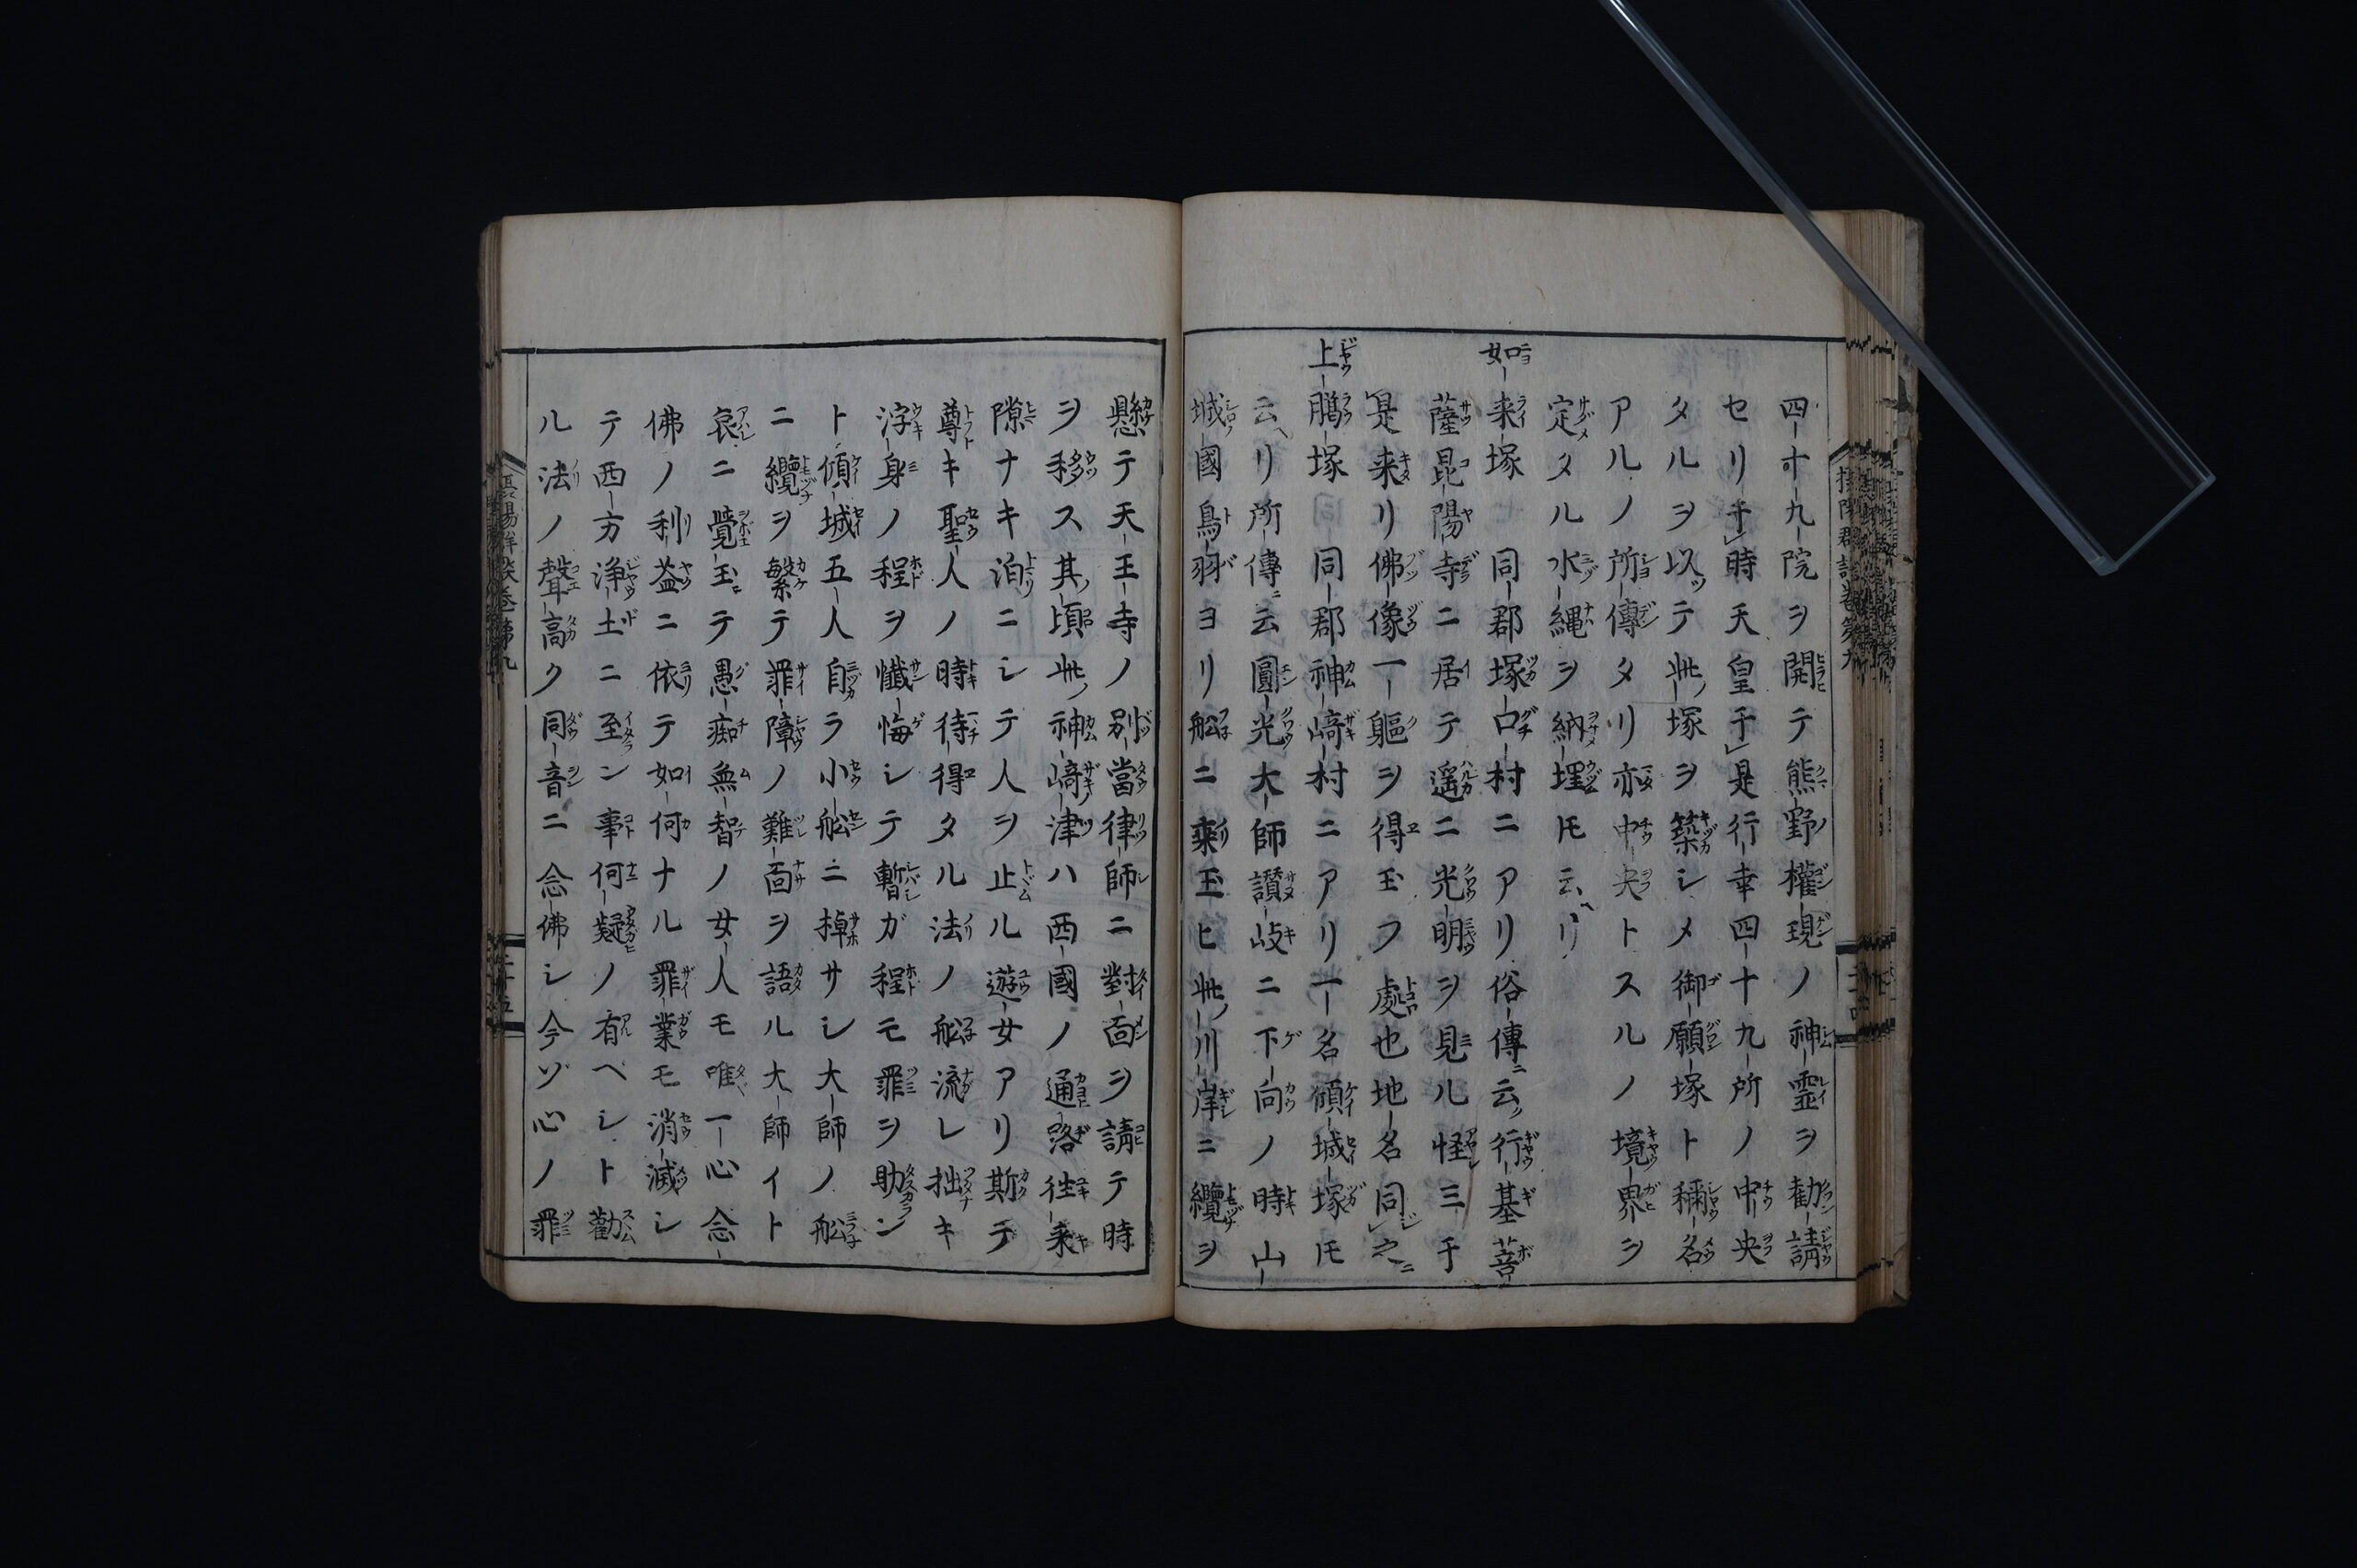 四十九院ヲ開テ熊野權現ノ神霊ヲ勸請
セリ于時天皇于是行幸四十九所ノ中央
タルヲ以テ此塚ヲ築シメ御願塚ト穪名
アルノ所傳タリ亦中央トスルノ境界ヲ
定タル水縄ヲ納埋モ云リ
如来塚 同郡塚口村ニアリ俗傳云行基菩
薩昆陽寺ニ居テ遥ニ光明ヲ見ル怪三于
是来リ佛像一軀ヲ得玉フ處也地名同之
上臈塚 同郡神﨑村ニアリ一名傾城塚モ
云リ所傳云圓光大師讃岐ニ下向ノ時山
城國鳥羽ヨリ舩ニ乗玉ヒ此川岸ニ纜ヲ
懸テ天王寺ノ別當律師ニ對面ヲ請テ時
ヲ移ス其頃此神﨑津ハ西國ノ通路徃来
隙ナキ泊ニシテ人ヲ止ル遊女アリ斯テ
尊キ聖人ノ時待得タル法ノ舩流レ拙キ
浮身ノ程ヲ懺悔シテ暫ガ程モ罪ヲ助ン
ト傾城五人自ラ小舩ニ棹サシ大師ノ舩
ニ纜ヲ繋テ罪障ノ難面ヲ語ル大師イト
哀ニ覺玉テ愚痴無智ノ女人モ唯一心念
佛ノ利益ニ依テ如何ナル罪業モ消滅シ
テ西方浄土ニ至ン事何疑ノ有ヘシト勸
ル法ノ聲高ク同音ニ念佛シ今ゾ心ノ罪